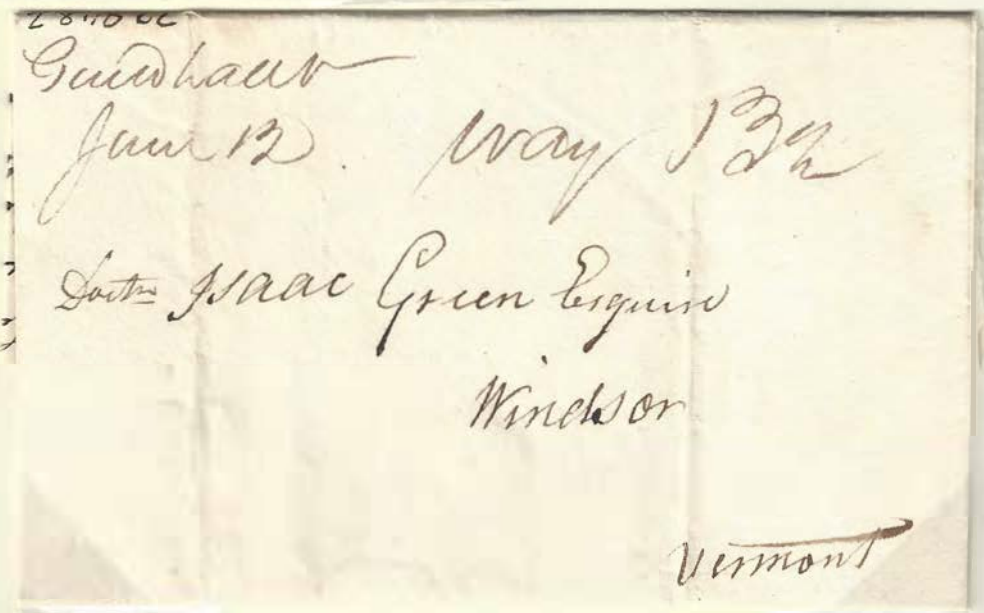 Guildhall Vt
June 12 Way 13½
Doctr Isaac Green Esquire
Windsor
Vermont